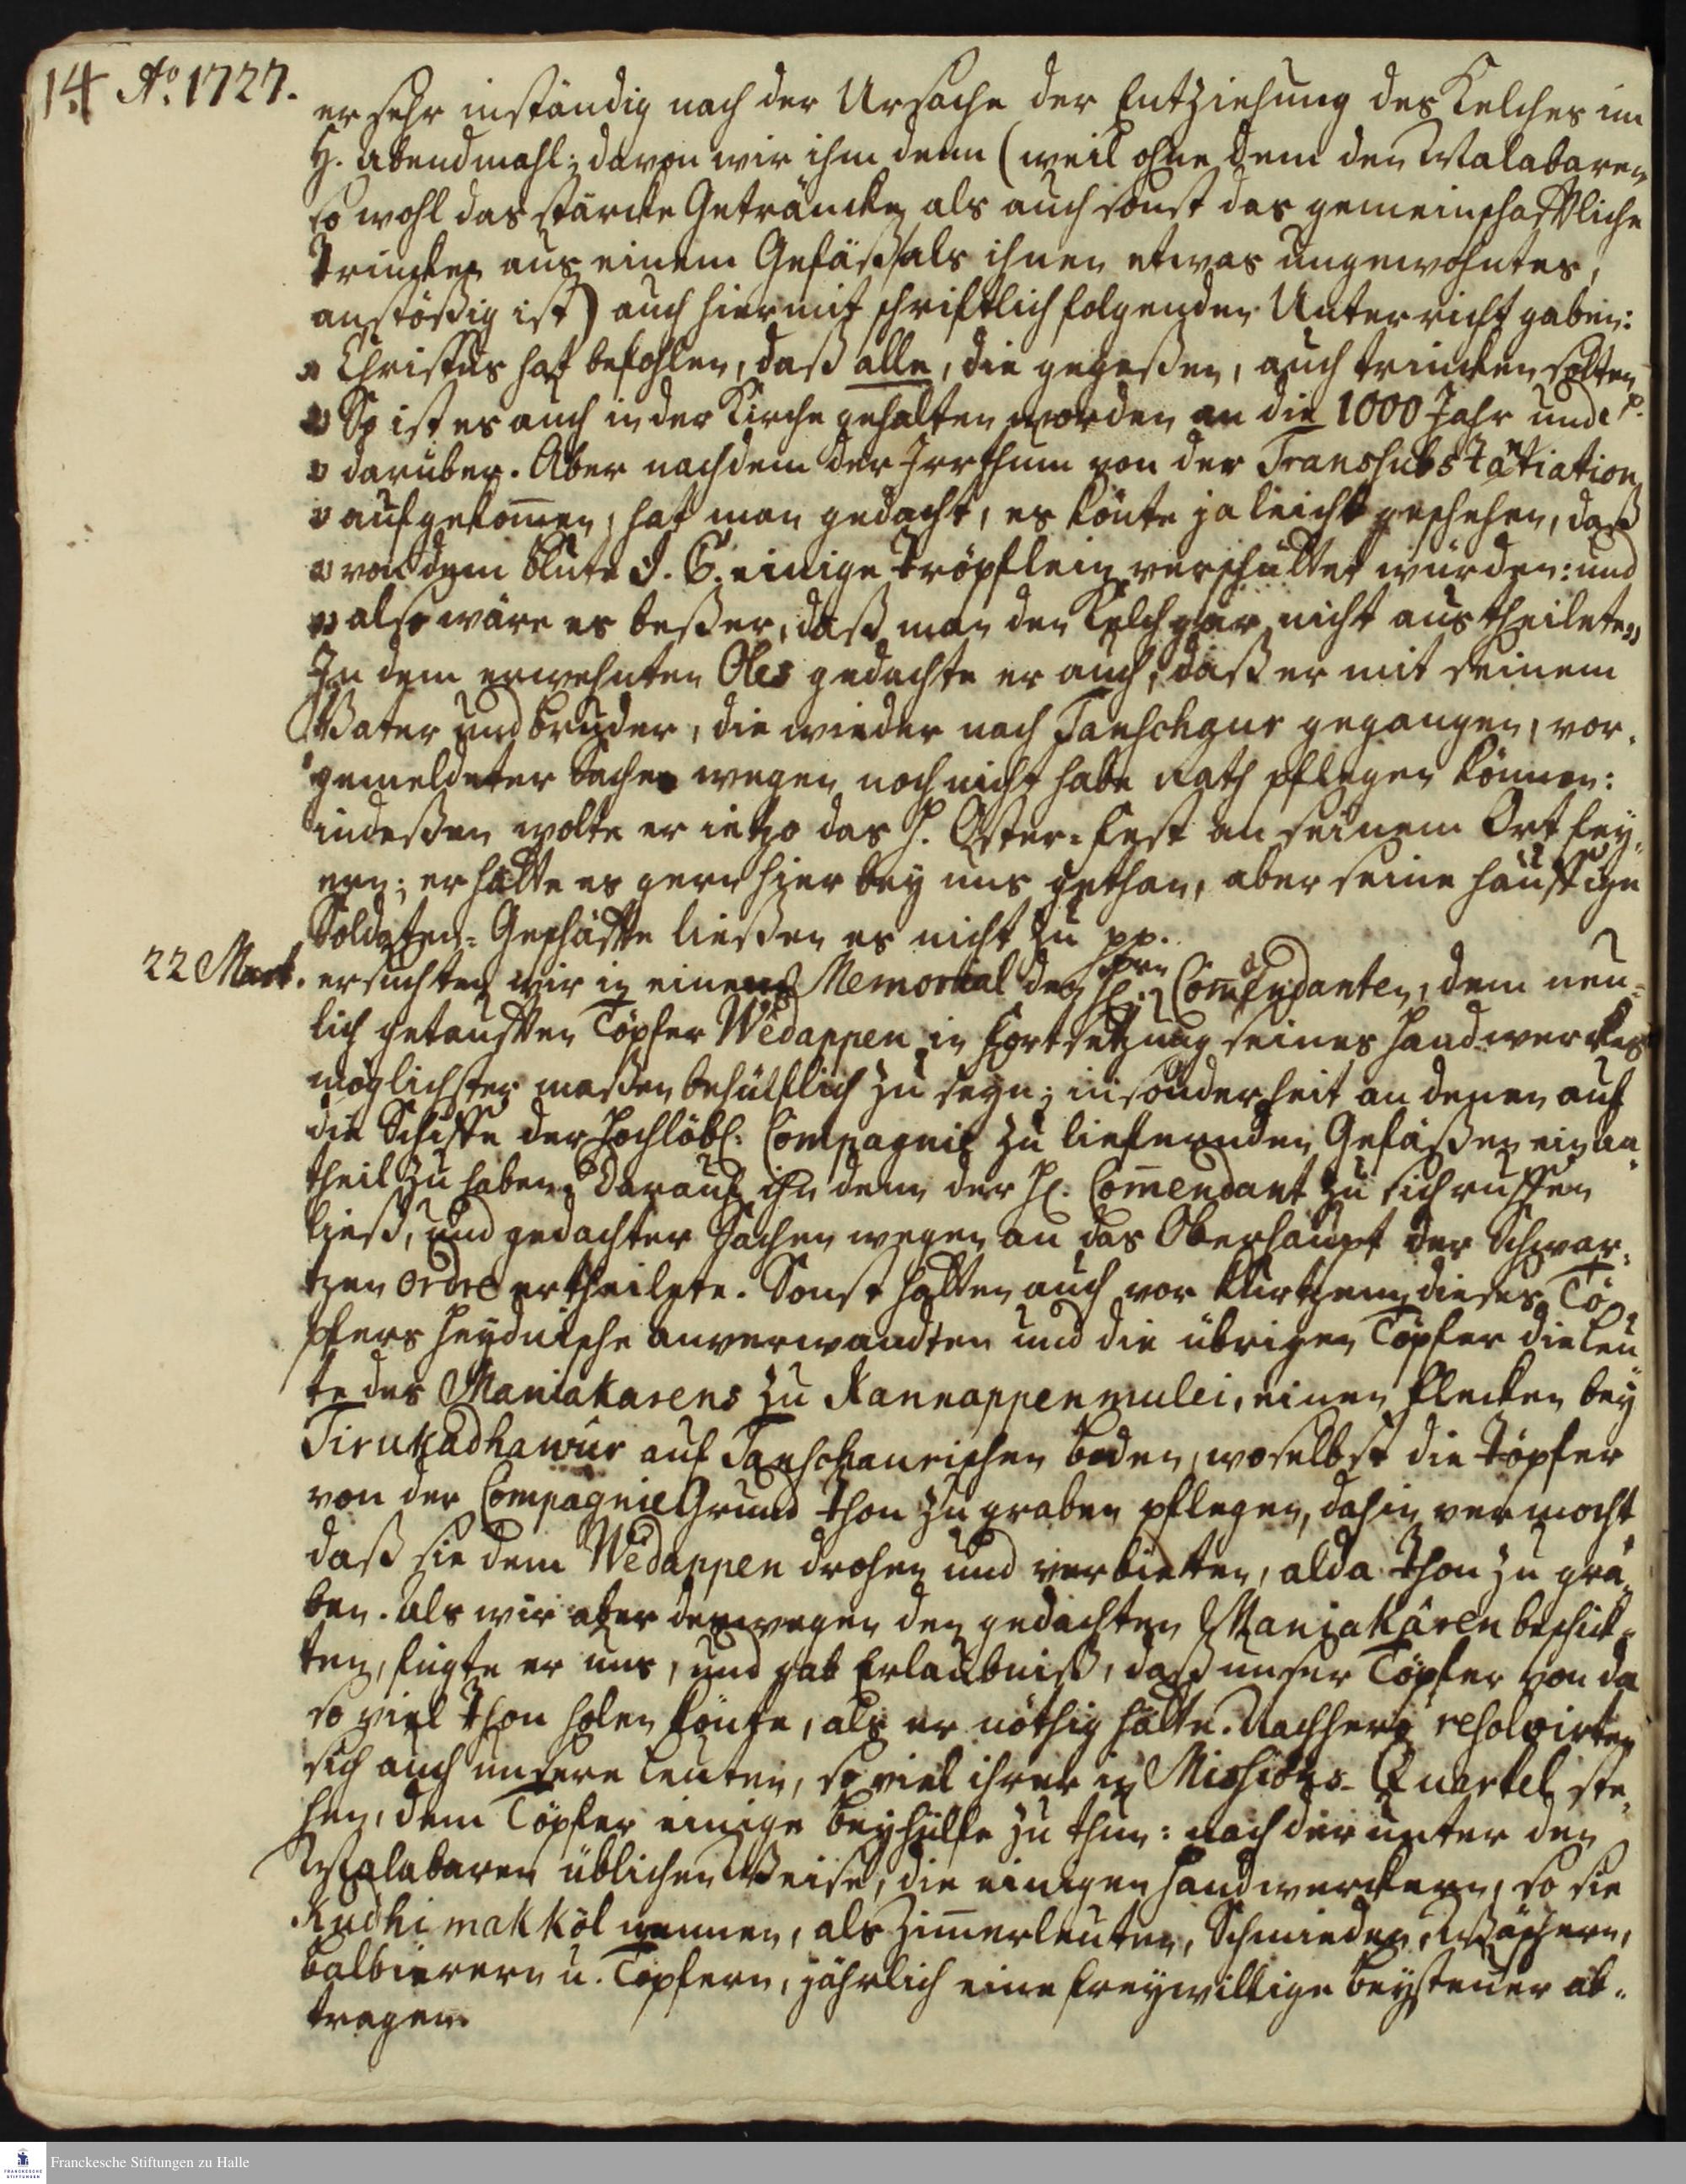 14 Ao. 1727.
er sehr inständig nach der Ursache der Entziehung des Kelches im
H. Abendmahl; davon wir ihm denn (weil ohne dem den Malabaren
so wohl das starcke Geträncke als auch sonst das gemeinschafftliche
Trincken aus einem Gefäß, als ihnen etwas ungewohntes,
anstößig ist) auch hiermit schriftlich folgenden Unterricht gaben:
" Christus hat befohlen, daß alle, die gegeßen, auch trincken solten
" So ist es auch in der Kirche gehalten worden an die 1000 Jahr und
" darüber. Aber nachdem der Irrthum von der Transsubstantiation
" aufgekom̅en, hat man gedacht, es könte ja leicht geschehen, daß
" von dem Blute J. C. einige Tröpflein verschüttet würden: und
" also wäre es beßer, daß man den Kelch gar nicht austheilete"
In dem erwehnten Oles gedachte er auch, daß er mit seinem
Vater und Bruder, die wieder nach Tanschaur gegangen, vor-
gemeldeter Sache wegen noch nicht habe Rath pflegen können:
indeßen wolte er ietzo das H. Oster-Fest an seinem Ort fey-
ern; er hätte es gern hier bey uns gethan, aber seine häuffige
Soldaten-Geschäffte ließen es nicht zu pp.
22 Mart. ersuchten wir in einem Memorial den Hrn Com̅endanten, dem neu-
lich getaufften Töpfer Wêdappen in Fortsetzung seines Handwerckes
möglichster maßen behülfflich zu seyn; insonderheit an denen auf
die Schiffe der Hochlöbl. Compagnie zu liefernden Gefäßen ein an-
theil zu haben; Darauf ihn denn der H. Com̅endant zu sich ruffen
ließ, und gedachter Sachen wegen an das Oberhaupt der Schwar-
tzen ordre ertheilete. Sonst hatten auch vor kurtzem dieses Tö-
pfers Heydnische anverwandten und die übrigen Töpfer die Leu-
te des Maniakarens zu Kannappenmulei, einen Flecken bey
Tirukadhawur auf Tanschaurischen Boden, woselbst die Töpfer
von der Compagnie Grund Thon zu graben pflegen, dahin vermocht
daß sie dem Wêdappen drohen und verbieten, alda Thon zu gra-
ben. Als wir aber deswegen den gedachten Maniakâren beschick-
ten, fügte er uns, und gab Erlaubniß, daß unser Töpfer von da
so viel Thon holen könte, als er nöthig hätte. Nachhero resolvirten
sich auch unsere Leute, so viel ihrer in Missions-Quartel ste-
hen, dem Töpfer einige Beyhülfe zu thun: nach der unter den
Malabaren üblichen Weise, die einigen Handwerckern, so sie
Kudhi makköl nennen, als Zim̅erleuten, Schmieden, Wäschern,
Balbierern u. Töpfern, jährlich eine freywillige Beysteuer ab-
tragen.
Franckesche Stiftungen zu Halle